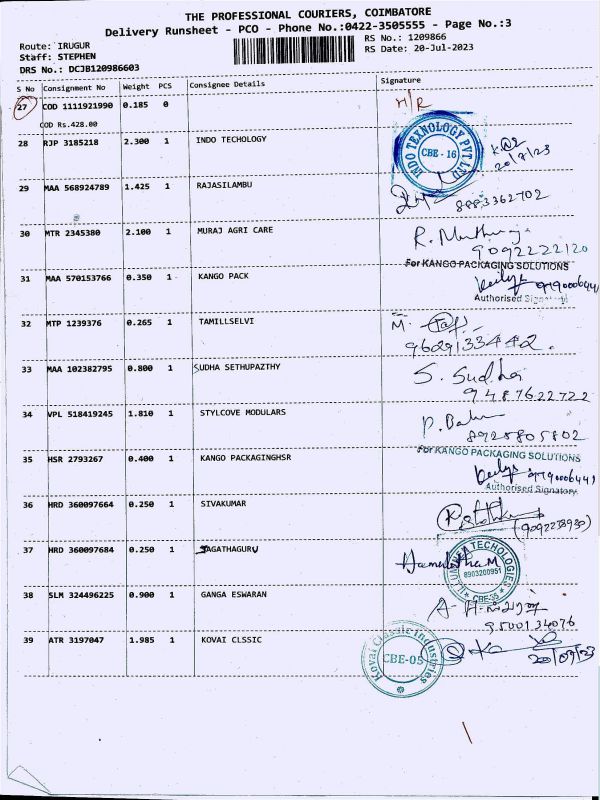 THE PROFESSIONAL COURIERS, COIMBATORE
Delivery Runsheet - PCO - Phone No.:0422-3505555 - Page No.:3
Route: IRUGUR
RS No.: 1209866
Staff: STEPHEN
RS Date: 20-Jul-2023
DRS No.: DCJB120986603
S No Consignment No Weight PCS Consignee Details Signature
27 COD 1111921990 0.185 0 H/R
COD Rs.428.00
28 RJP 3185218 2.300 1 INDO TECHOLOGY
INDO TEXNOLOGY PVT LTD
CBE-16
20/7/23
29 MAA 568924789 1.425 1 RAJASILAMBU
8883362702
30 MTR 2345380 2.100 1 MURAJ AGRI CARE
9092222120
31 MAA 570153766 0.350 1 KANGO PACK
For KANGO PACKAGING SOLUTIONS
Authorised Signatory
32 MTP 1239376 0.265 1 TAMILLSELVI
M.
9629133442.
33 MAA 102382795 0.800 1 SUDHA SETHUPAZTHY
S. Sudha
9487622722
34 VPL 518419245 1.810 1 STYLCOVE MODULARS
8925805802
35 HSR 2793267 0.400 1 KANGO PACKAGINGHSR
For KANGO PACKAGING SOLUTIONS
Authorised Signatory
36 HRD 360097664 0.250 1 SIVAKUMAR
37 HRD 360097684 0.250 1 JAGATHAGURU
Hamalatha M
TECHOLOGIES
8903200951
CBE-35
38 SLM 324496225 0.900 1 GANGA ESWARAN
9500134076
39 ATR 3197047 1.985 1 KOVAI CLSSIC
Kovai Classic Industries
CBE-05
20/07/23